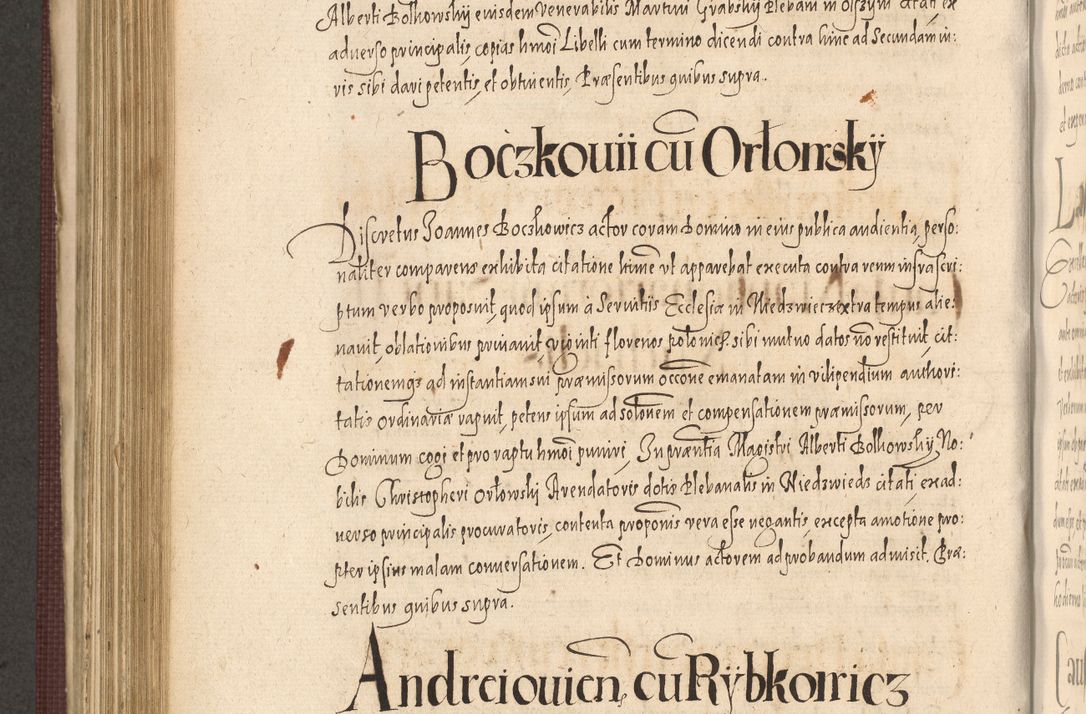 Alberti Bolkowskij eiusdem Venerabilis Martini Grabskij Plebani in Olszyni citati ex
adverso principalis, copias hmoi Libelli cum termino dicendi contra hinc ad Secundam in:
ris sibi dari petentis, et obtinentis, Præsentibus quibus supra.
Boczkouii cū Orłowskÿ
Discretus Joannes Boczkowicz actor coram Domino in eius publica audientia, perso:
naliter comparens exhibita citatione hinc vt apparebat executa contra reum infrascri:
ptum verbo proposuit, quod ipsum à Seruitiis Ecclesiæ in Niedzwiecz extra tempus alie:
nauit, oblationibus priuauit, viginti florenos polonich sibi mutuo datos nō restituit, cit:
tationemqs ad instantiam sui præmissorum occōne emanatam in vilipendium authori:
tatis ordinariæ rapuit, petens ipsum ad solōnem et compensationem præmissorum, per
Dominum cogi et pro raptu hmoi puniri, In præntia Magistri Alberti Bolkowskij, No:
bilis Christopheri Orłowskij Arendatoris dotis Plebanalis in Niedzwiedz citati, ex ad:
uerso principalis procuratoris, contenta proponis vera esse negantis, excepta amotione pro:
pter ipsius malam conuersationem. Et Dominus actorem ad probandum admisit. Præ:
sentibus quibus supra.
Andreiouien, cū Rÿbkowicz